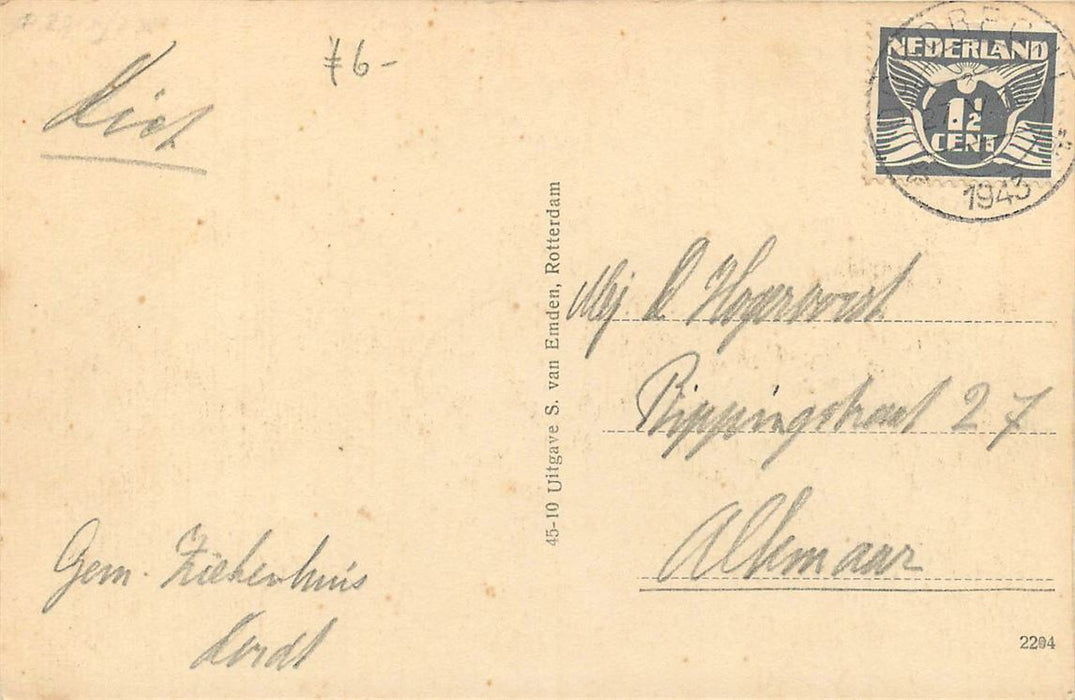 ƒ 6-
NEDERLAND
1½
CENT
1943
45-10 Uitgave S. van Emden, Rotterdam
Mej R Hogervorst
Rippingstraat 27
Alkmaar
Gem. Ziekenhuis
Dordt
2204